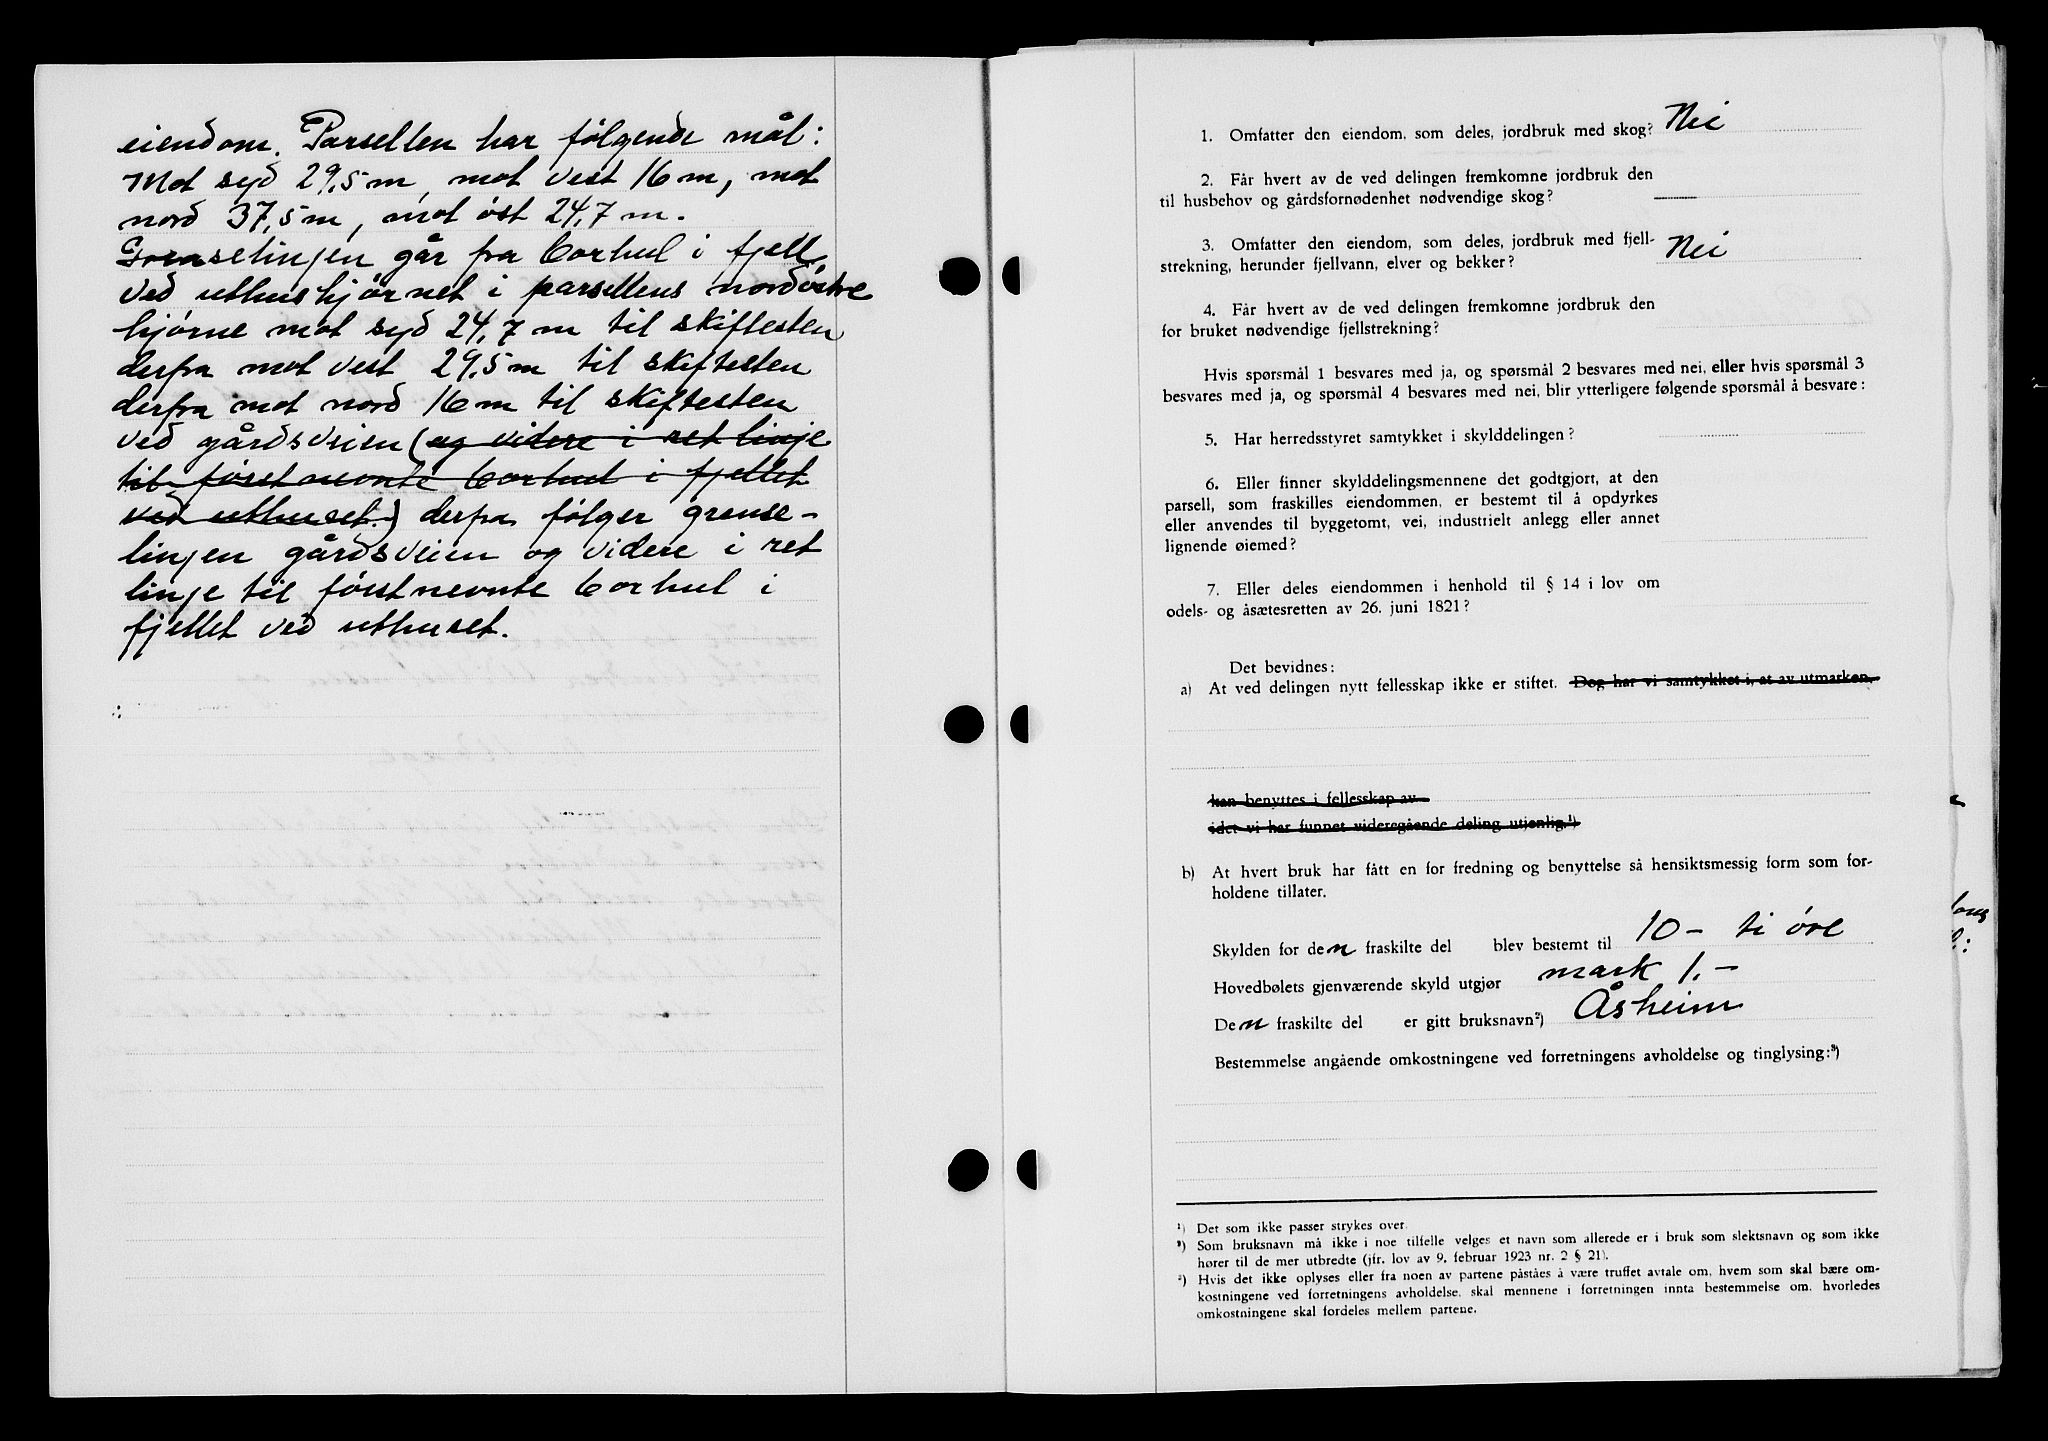 eiendom. Parsellen har følgende mål:
Mot syd 29,5 m, mot vest 16 m, mot
nord 37,5 m, mot øst 24,7 m.
Grenselinjen går fra borhul i fjell
ved uthushjørnet i parsellens nordøstre
hjørne mot syd 24,7 m til skiftesten
derfra mot vest 29,5 m til skiftesten
derfra mot nord 16 m til skiftesten
ved gårdsveien (og videre i ret linje
til førstnevnte borhul i fjellet
ved uthuset.) derfra følger grense-
linjen gårdsveien og videre i ret
linje til førstnevnte borhul i
fjellet ved uthuset.
1. Omfatter den eiendom, som deles, jordbruk med skog? Nei
2. Får hvert av de ved delingen fremkomne jordbruk den
til husbehov og gårdsfornødenhet nødvendige skog? —
3. Omfatter den eiendom, som deles, jordbruk med fjell-
strekning, herunder fjellvann, elver og bekker? Nei
4. Får hvert av de ved delingen fremkomne jordbruk den
for bruket nødvendige fjellstrekning?
Hvis spørsmål 1 besvares med ja, og spørsmål 2 besvares med nei, eller hvis spørsmål 3
besvares med ja, og spørsmål 4 besvares med nei, blir ytterligere følgende spørsmål å besvare:
5. Har herredsstyret samtykket i skylddelingen?
6. Eller finner skylddelingsmennene det godtgjort, at den
parsell, som fraskilles eiendommen, er bestemt til å opdyrkes
eller anvendes til byggetomt, vei, industrielt anlegg eller annet
lignende øiemed?
7. Eller deles eiendommen i henhold til § 14 i lov om
odels- og åsætesretten av 26. juni 1821?
Det bevidnes:
a) At ved delingen nytt fellesskap ikke er stiftet. Dog har vi samtykket i, at av utmarken,
kan benyttes i fellesskap av
idet vi har funnet videregående deling utjenlig.¹)
b) At hvert bruk har fått en for fredning og benyttelse så hensiktsmessig form som for-
holdene tillater.
Skylden for den fraskilte del blev bestemt til 10 - ti øre
Hovedbølets gjenværende skyld utgjør mark 1.-
Den fraskilte del er gitt bruksnavn²) Åsheim
Bestemmelse angående omkostningene ved forretningens avholdelse og tinglysing:³)
¹) Det som ikke passer strykes over.
²) Som bruksnavn må ikke i noe tilfelle velges et navn som allerede er i bruk som slektsnavn og som ikke
hører til de mer utbredte (jfr. lov av 9. februar 1923 nr. 2 § 21).
³) Hvis det ikke oplyses eller fra noen av partene påståes å være truffet avtale om, hvem som skal bære om-
kostningene ved forretningens avholdelse, skal mennene i forretningen innta bestemmelse om, hvorledes
omkostningene skal fordeles mellem partene.